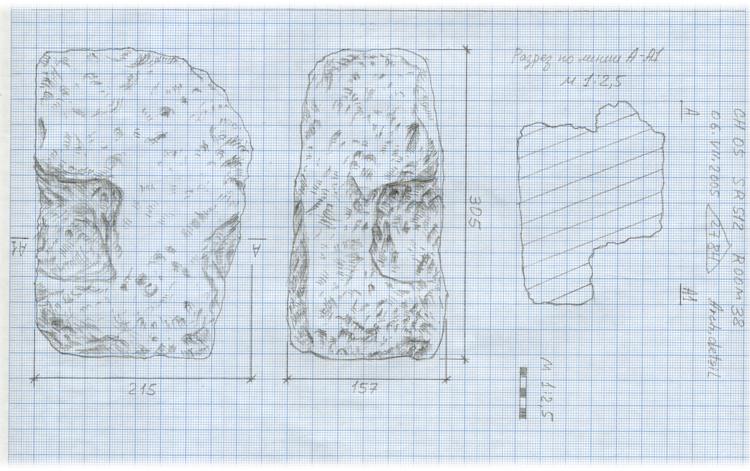 Разрез по линии А-А1
М 1:2,5
CH 05 SR 5/2 ROOM 38
06.VII.2005 2784 Arch. detail
А
А1
А1
А
305
215
157
М 1:2,5